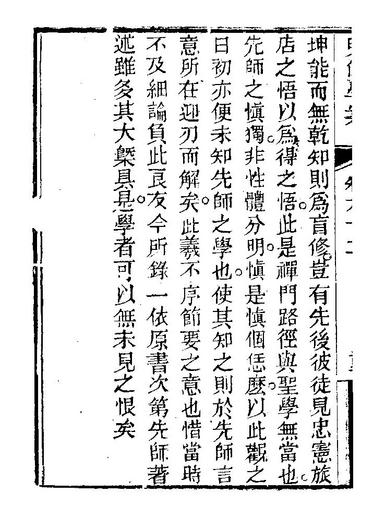 坤能而無乾知則爲盲修豈有先後彼徒見忠憲旅
店之悟以爲得之悟此是禪門路徑與聖學無當也
先師之愼獨非性體分明愼是愼個恁麽以此觀之
日初亦便未知先師之學也使其知之則於先師言
意所在迎刃而解矣此羲不序節要之意也惜當時
不及細論負此良友今所錄一依原書次第先師著
述雖多其大槩具是學者可以無未見之恨矣